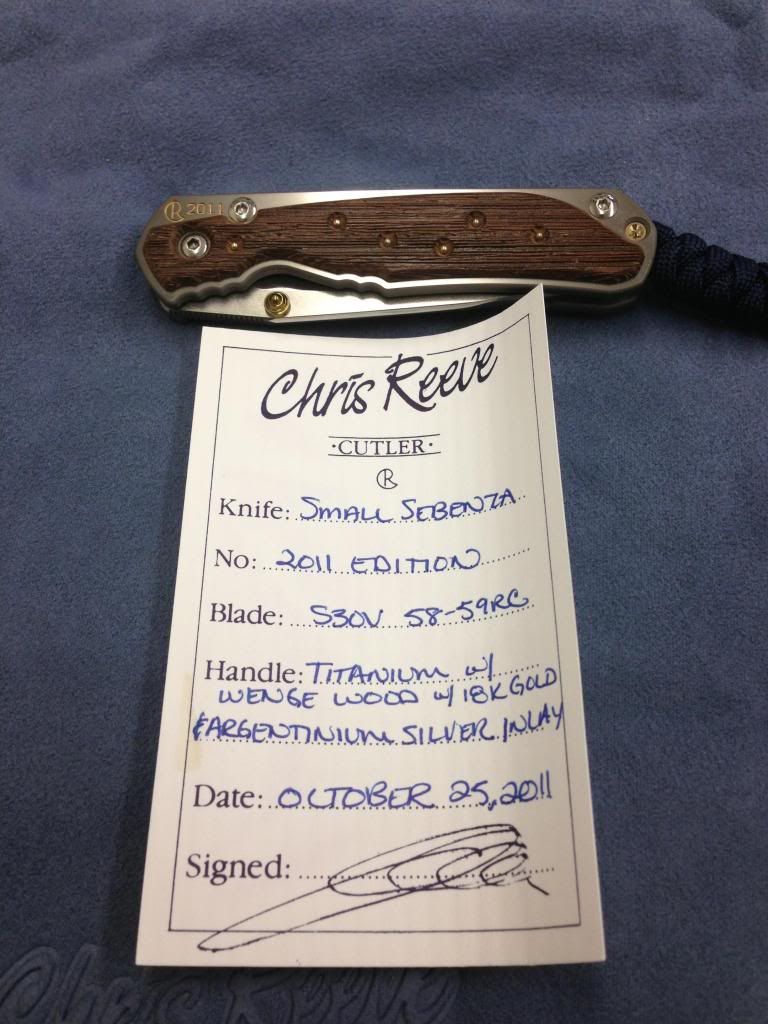 2011
Chris Reeve
·CUTLER·
Knife: SMALL SEBENZA
No: 2011 EDITION
Blade: S30V 58-59RC
Handle: TITANIUM W/
WENGE WOOD W/ 18K GOLD
& ARGENTINIUM SILVER INLAY
Date: OCTOBER 25, 2011
Signed:
Chris Reeve